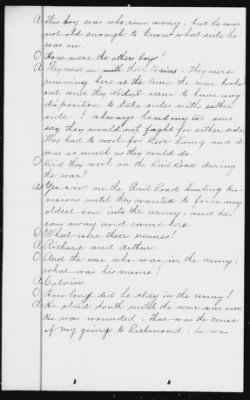 A This boy was who run away; but he was
not old enough to know what side he
was on.
Q How were the other boys?
A They were in with their trains. They were
running here at the time the war broke
out and they didn't seem to have any
disposition to take sides with either
side. I always heard my two sons
say they would not fight for either side
They had to work for their living and it
was as much as they could do.
Q Did they work on the Rail Road during
the war?
A Yes sir on the Rail Road hunting
until they wanted to force my
oldest son into the army; and he
ran away and came here
Q What were their names?
A Richard and Arthur
Q And the one who was in the army;
what was his name?
A Calvin.
Q How long did he stay in the army?
A He staid South until the war was over
He was wounded. that was the cause
of my going to Richmond; he was